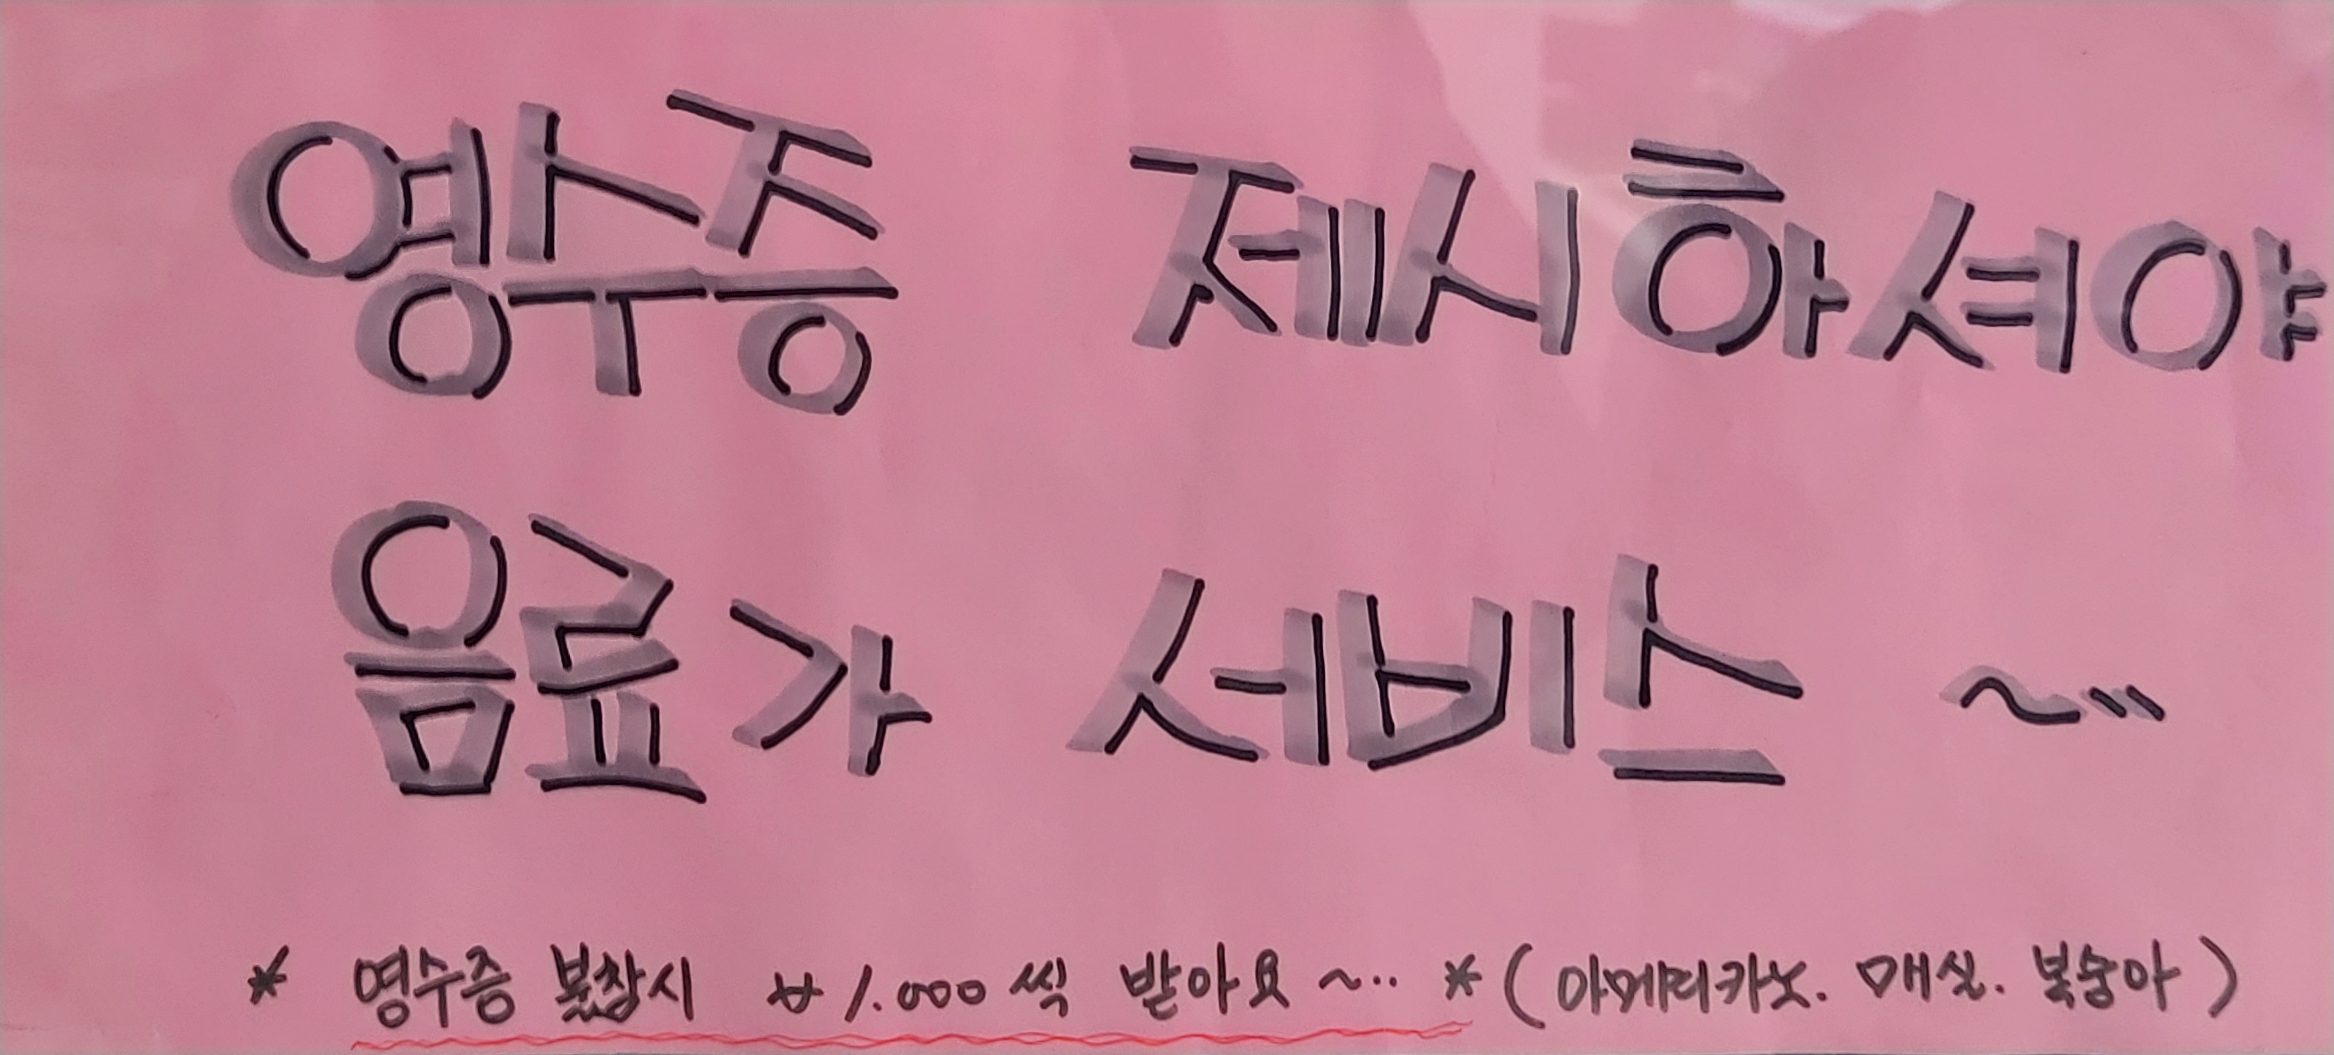 영수증 제시하셔야
음료가 서비스 ~...
* 영수증 불참시 ₩1.000씩 받아요~... * (아메리카노. 매실. 복숭아)